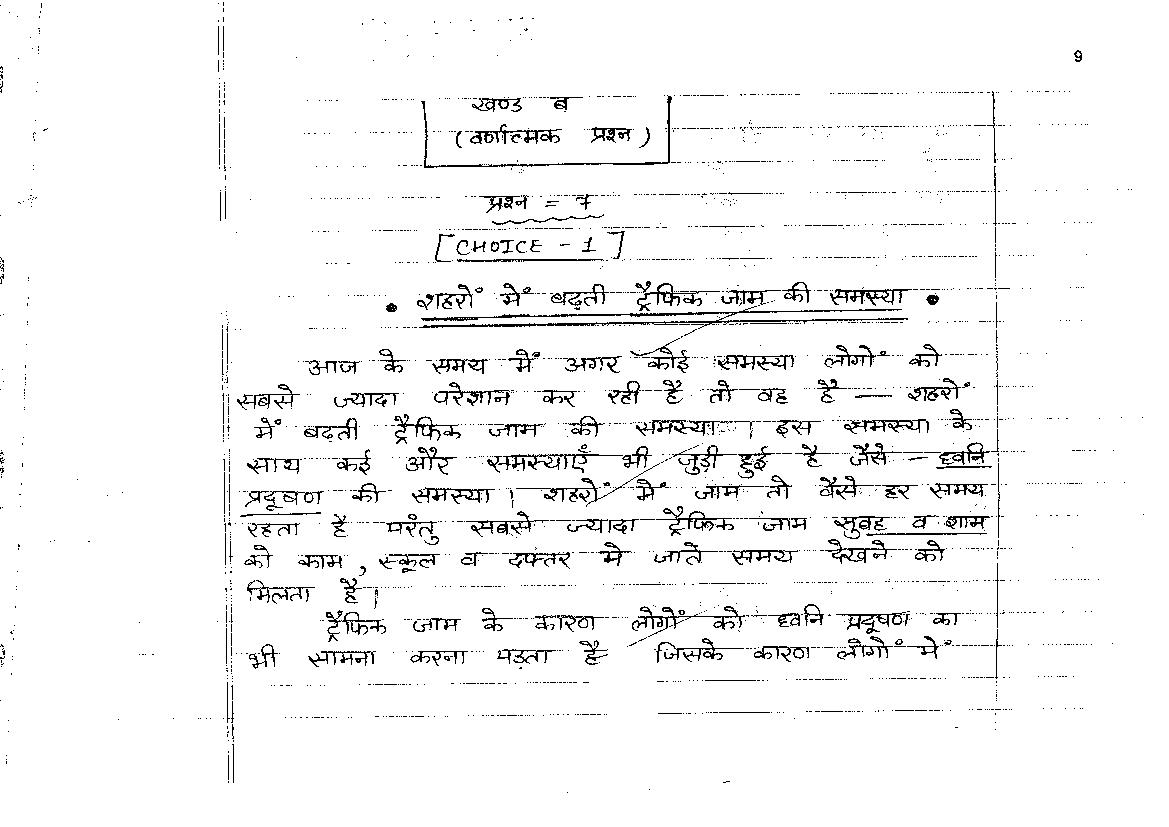 9
खण्ड ब
(वर्णात्मक प्रश्न)
प्रश्न = 7
[CHOICE - 1]
• शहरों में बढ़ती ट्रैफिक जाम की समस्या •
आज के समय में अगर कोई समस्या लोगों को
सबसे ज्यादा परेशान कर रही है तो वह है — शहरों
में बढ़ती ट्रैफिक जाम की समस्या । इस समस्या के
साथ कई और समस्याएँ भी जुड़ी हुई है जैसे - ध्वनि
प्रदूषण की समस्या । शहरों में जाम तो वैसे हर समय
रहता है परंतु सबसे ज्यादा ट्रैफिक जाम सुबह व शाम
को काम, स्कूल व दफ्तर मे जाते समय देखने को
मिलता है।
ट्रैफिक जाम के कारण लोगों को ध्वनि प्रदूषण का
भी सामना करना पड़ता है जिसके कारण लोगों में